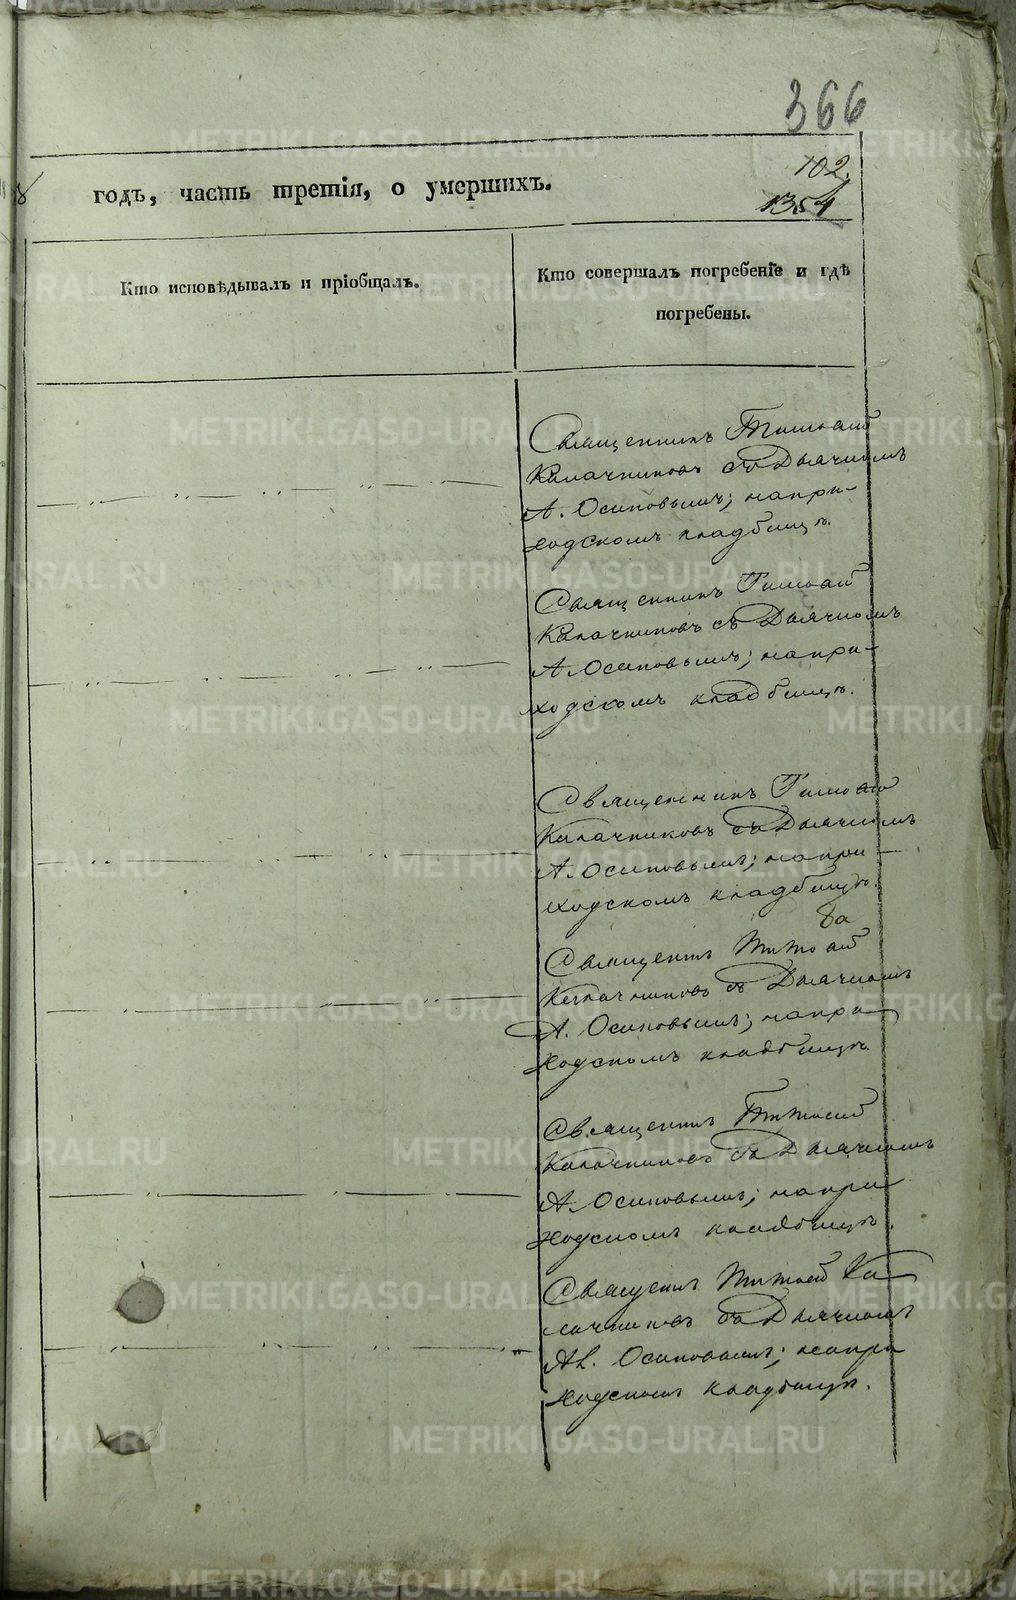 366
8
102.
1354
годъ, часть третія, о умершихъ.
Кто исповѣдывалъ и пріобщалъ.
Кто совершалъ погребеніе и гдѣ
погребены.
Священникъ Тимофей
Калачниковъ съ Дьячкомъ
А. Осиповымъ; на при-
ходскомъ кладбищѣ.
Священникъ Тимофей
Калачниковъ съ Дьячкомъ
А Осиповымъ; на при-
ходскомъ кладбищѣ.
Священникъ Тимофей
Калачниковъ съ Дьячкомъ
А. Осиповымъ; на при-
ходскомъ кладбищѣ.
8а
Священникъ Тимофей
Калачниковъ съ Дьячкомъ
А. Осиповымъ; на при-
ходскомъ кладбищѣ.
Священникъ Тимофей
Калачниковъ съ Дьячкомъ
А Осиповымъ; на при
ходскомъ кладбищѣ.
Священникъ Тимофей Ка-
лачниковъ съ Дьячкомъ
Ал. Осиповымъ; на при
ходскомъ кладбищѣ.
METRIKI.GASO-URAL.RU